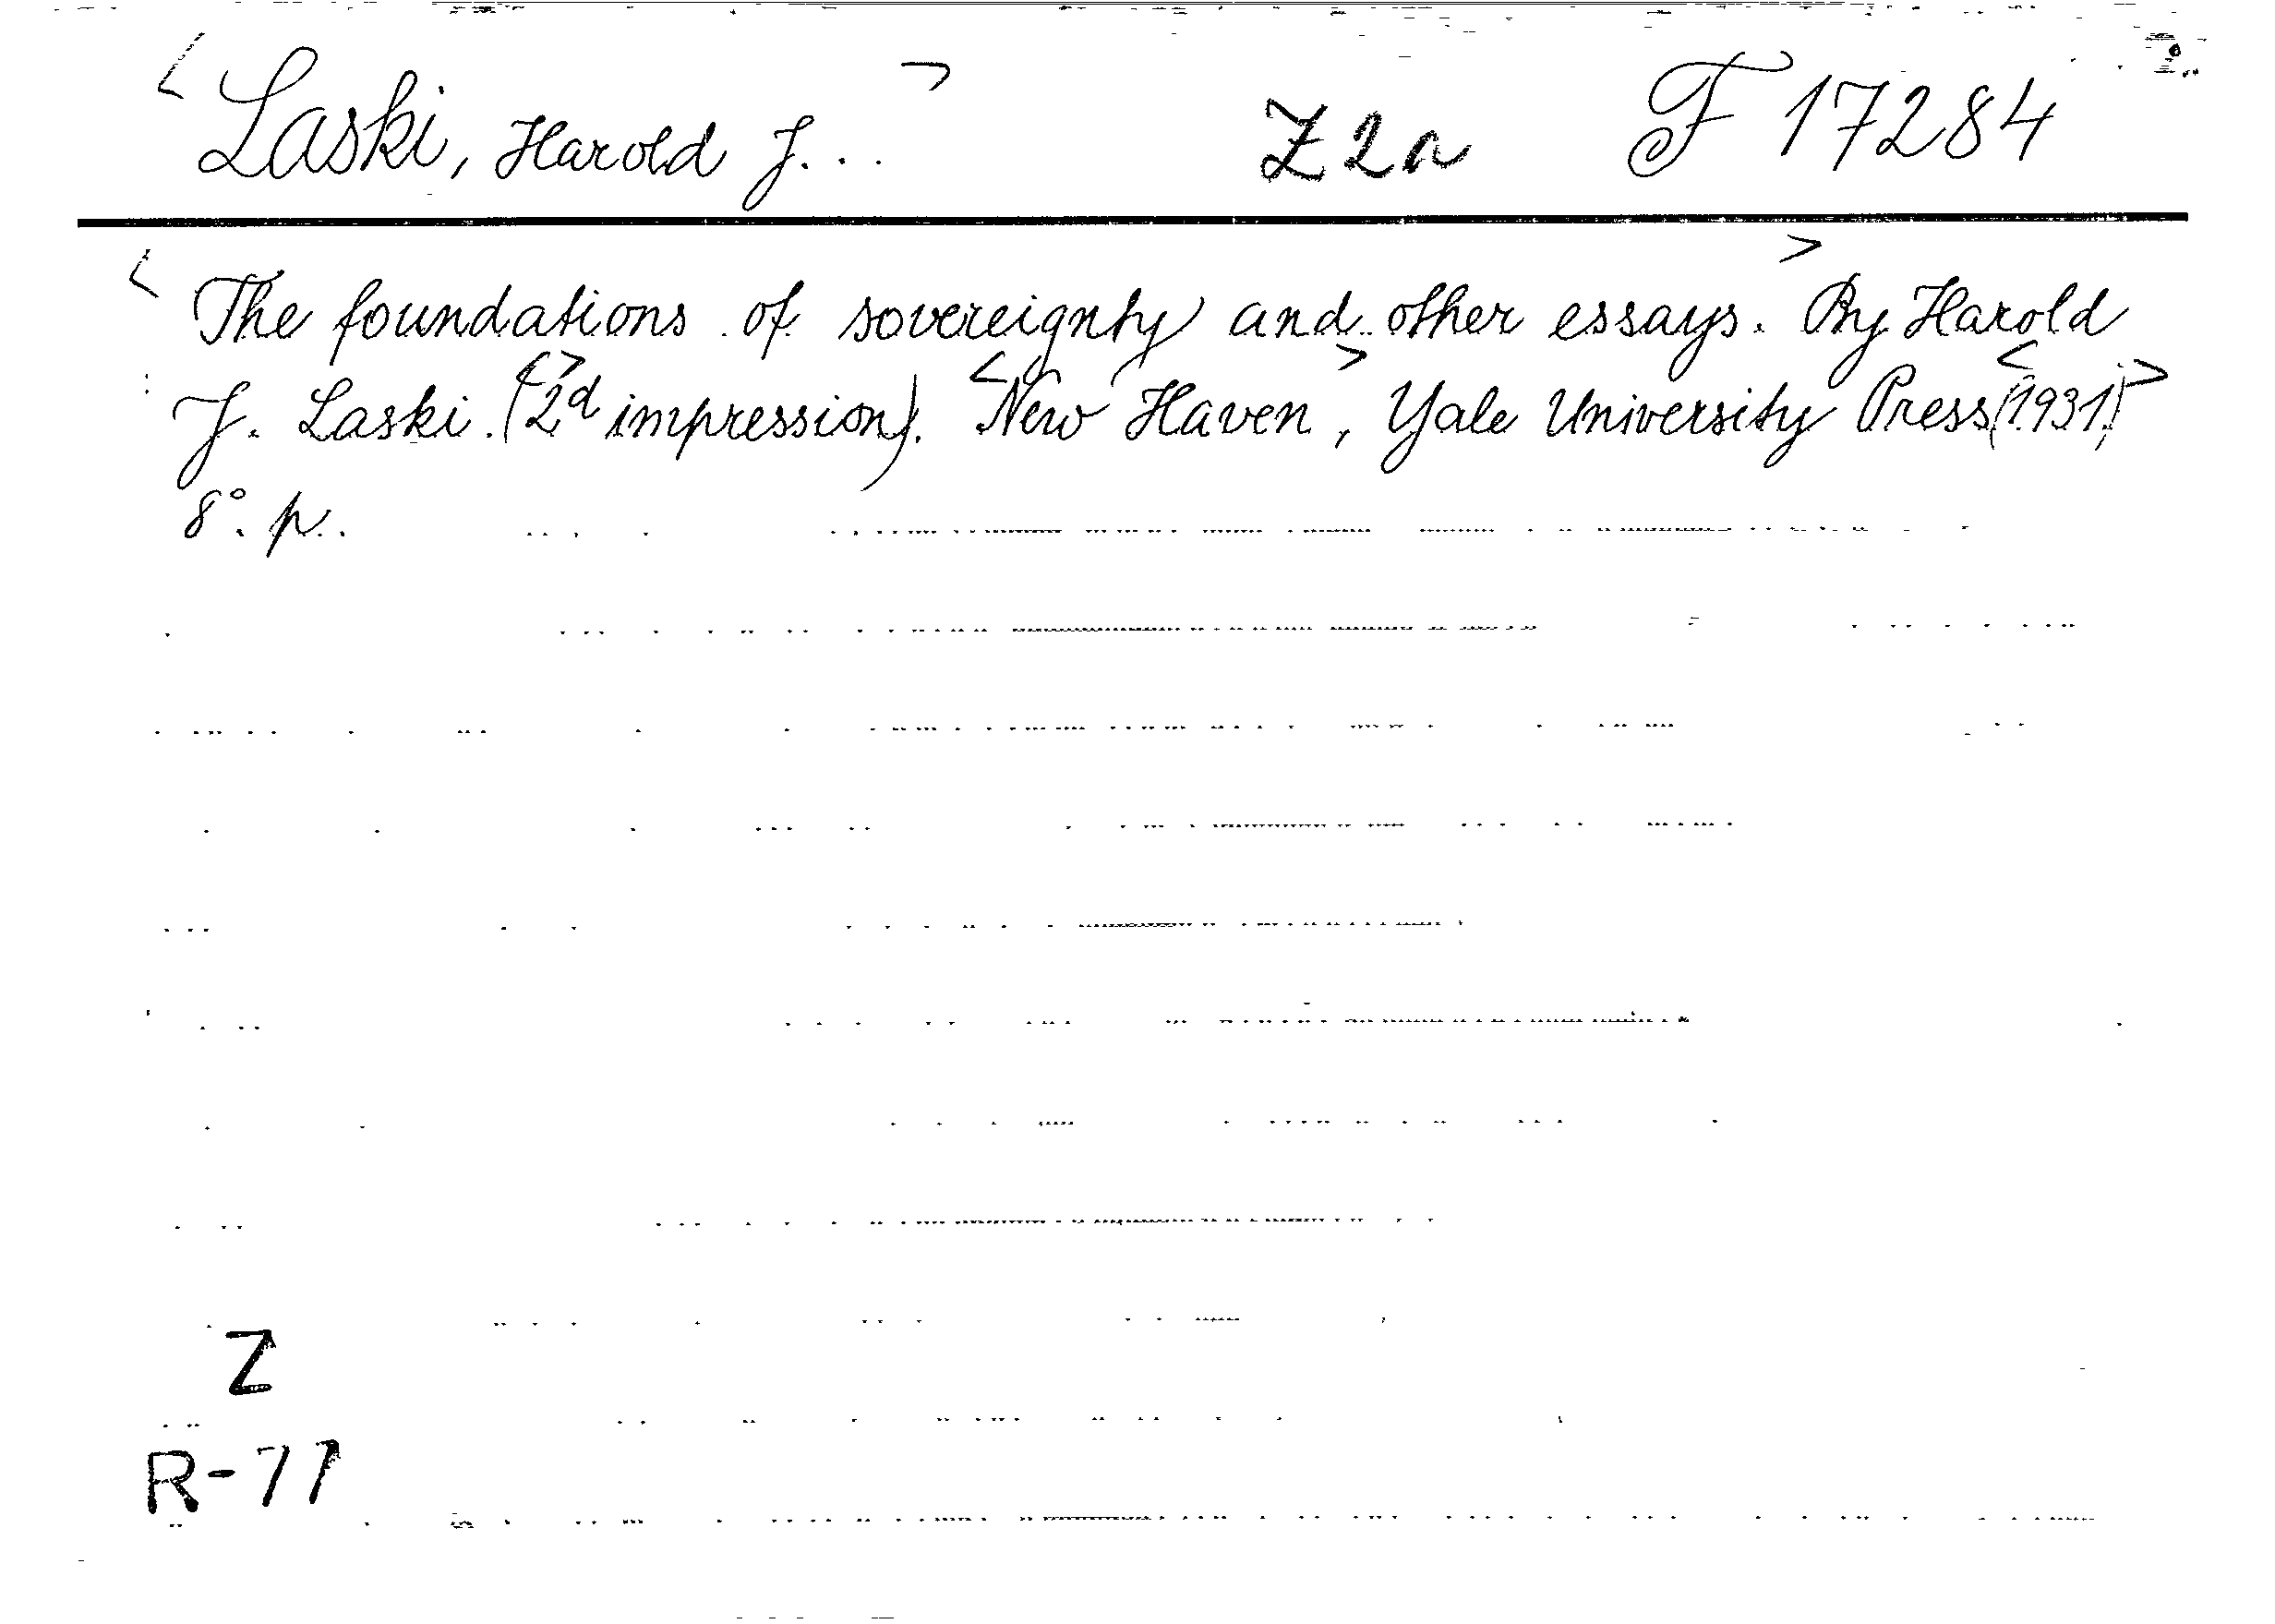 <Laski, Harold J...> Z2a F 17284
<The foundations of sovereignty and other essays.> By Harold
J. Laski. (<2>d impression). <New Haven>, Yale University Press <(1931)>
8°. p.
Z
R-71